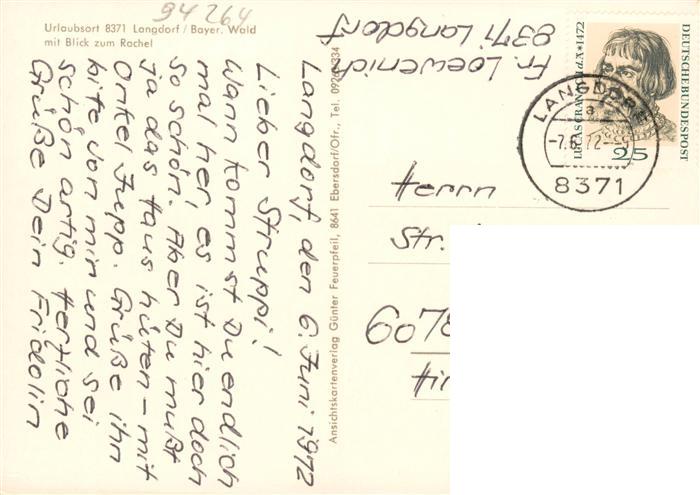 94264
Urlaubsort 8371 Langdorf / Bayer. Wald
mit Blick zum Rachel
Langdorf, den 6. Juni 1972
Lieber Struppi!
Wann kommst Du endlich
mal her, es ist hier doch
so schön. Aber Du mußt
ja das Haus hüten – mit
Onkel Jupp. Grüße ihn
bitte von mir und sei
schön artig. Herzliche
Grüße Dein Fridolin
Ansichtskartenverlag Günter Feuerpfeil, 8641 Ebersdorf/Ofr., Tel. 09262/334
Fr. Loewenich
8371 Langdorf
LUCAS CRANACH d.Ä. * 1472
DEUTSCHE BUNDESPOST
25
LANGDORF
a
-7.6.72--9
8371
Herrn
Str.
6078